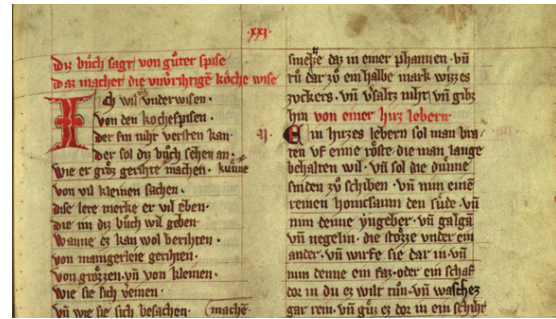 ·xxi·
diz bůch sagt von gůter spise
daz machet die vnv̊rihtigē köche wise
Ich wil vnderwisen·
von den kochespisen·
der sin niht versten kan·
der sol diz bůch sehen an·
wie er groz gerihte machen· kůnne
von vil kleinen sachen·
dise lere merke er vil eben·
die im diz bůch wil geben·
wanne ez kan wol berihten·
von manigerleie gerihten·
von grözzen· vn̄ von kleinen·
wie sie sich vereinen·
vn̄ wie sie sich besachen· (mache̅·
smeltze daz in einer phannen· vn̄
rů dar zů ein halbe mark wizzes
zvckers· vn̄ v̓saltz niht· vn̄ gibz
hin von einer hirz lebern
Ein hirzes lebern sol man bra
ten vf eime röste· die man lange
behalten wil· vn̄ sol die dünne
sniden zů schiben· vn̄ nim eine̅
reinen honicsaum den süde· vn̄
nim denne yngeber· vn̄ galga̅
vn̄ negelin· die stözze vnder ein
ander· vn̄ wirfe sie dar in· vn̄
nim denne ein faz· oder ein schaf
dor in du ez wilt tůn· vn̄ waschez
gar rein· vn̄ güz ez dor in ein schiht
·ij·